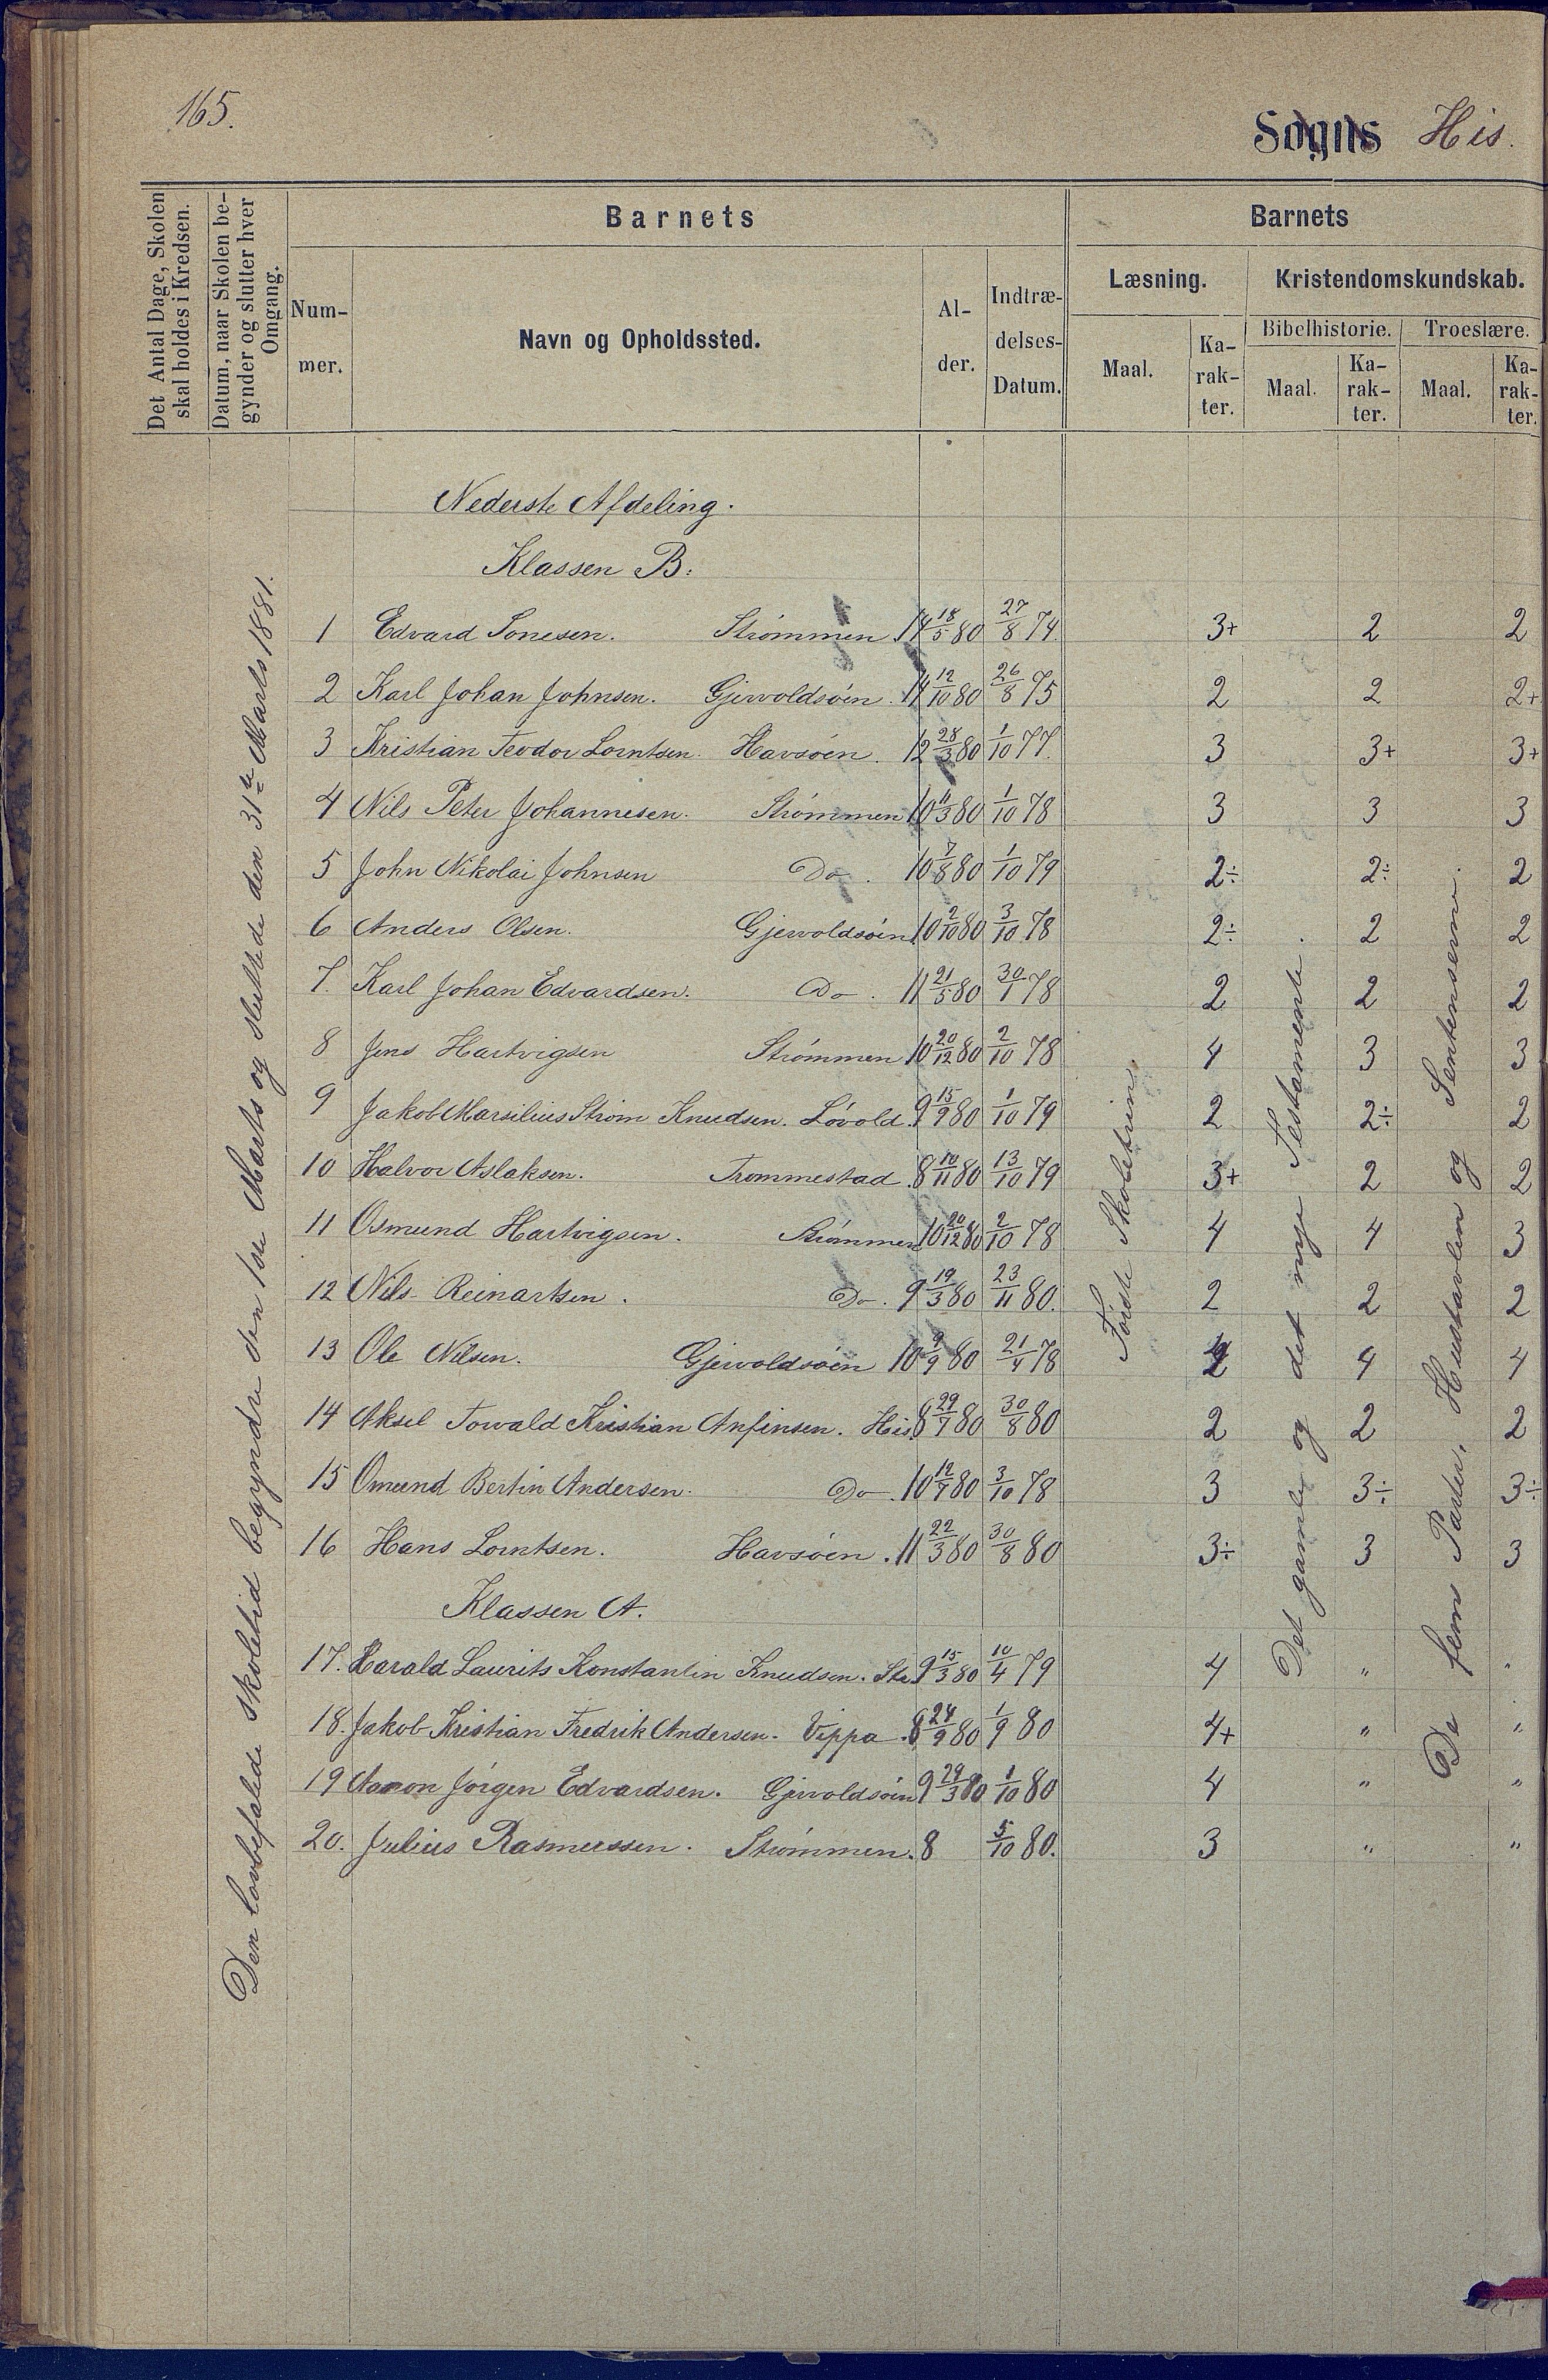 165.
Sogns His.
Det Antal Dage, Skolen skal holdes i Kredsen.
Datum, naar Skolen begynder og slutter hver Omgang.
Barnets
Nummer.
Navn og Opholdssted.
Alder.
Indtrædelses-Datum.
Barnets
Læsning.
Kristendomskundskab.
Bibelhistorie.
Troeslære.
Maal.
Karakter.
Maal.
Karakter.
Maal.
Karakter.
Den lovbefalede skoletid begyndte den 1ste Marts og sluttede den 31te Marts 1881.
Nederste Afdeling.
Klassen B:
1 Edvard Sonesen. Strømmen. 14 18/5 80 27/8 74. 3+ 2 2
2 Karl Johan Johnsen. Gjervoldsøen. 14 12/10 80 26/8 75 2 2 2+
3 Kristian Teodor Lorntsen. Havsøen. 12 28/3 80 1/10 77. 3 3+ 3+
4 Nils Peter Johannesen. Strømmen 10 11/3 80 1/10 78 3 3 3
5 John Nikolai Johnsen Do. 10 7/8 80 1/10 79 2÷ 2÷ 2
6 Anders Olsen. Gjervoldsøen 10 2/10 80 3/10 78 2÷ 2 2
7. Karl Johan Edvardsen. Do. 11 21/5 80 30/1 78 2 2 2
8 Jens Hartvigsen Strømmen 10 20/12 80 2/10 78 4 3 3
9 Jakob Marsilius Strøm Knudsen. Løvold. 9 15/9 80 1/10 79 2 2÷ 2
10 Halvor Aslaksen. Trommestad. 8 10/11 80 13/10 79 3+ 2 2
11 Osmund Hartvigsen. Strømmen 10 20/12 80 2/10 78 4 4 3
12 Nils Reinartsen. Do. 9 19/3 80 23/11 80. 2 2 2
13 Ole Nilsen. Gjervoldsøen 10 9/9 80 21/4 78 4 4
14 Aksel Torvald Kristian Anfinsen. His. 8 29/7 80 30/8 80 2 2 2
15 Omund Bertin Andersen. Do. 10 12/7 80 3/10 78 3 3÷ 3÷
16 Hans Lorntsen. Havsøen. 11 22/3 80 30/8 80 3÷ 3 3
Klassen A.
17. Harald Laurits Konstantin Knudsen. Str. 9 15/3 80 10/4 79 4 " "
18. Jakob Kristian Fredrik Andersen. Vippa. 8 24/9 80 1/9 80 4+ " "
19 Aamon Jørgen Edvardsen. Gjervoldsøen 9 29/3 80 1/10 80 4 " "
20. Julius Rasmussen. Strømmen. 8 5/10 80. 3 " "
Første Skoletrin
Det gamle og det nye Testamente.
De fem Parter, Hustavlen og Sentenserne.